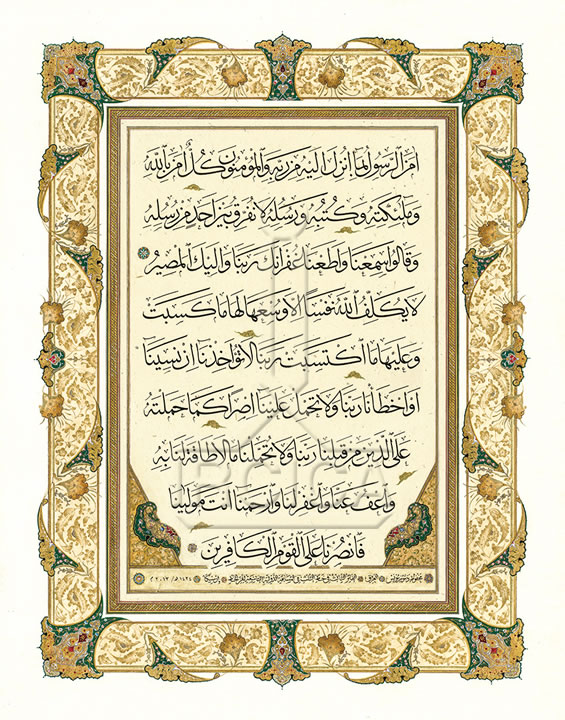 امن الرسول بما انزل اليه من ربه والمؤمنون كل امن بالله
وملئكته وكتبه ورسله لا نفرق بين احد من رسله
وقالوا سمعنا واطعنا غفرانك ربنا واليك المصير
لا يكلف الله نفسا الا وسعها لها ما كسبت
وعليها ما اكتسبت ربنا لا تؤاخذنا ان نسينا
او اخطأنا ربنا ولا تحمل علينا اصرا كما حملته
على الذين من قبلنا ربنا ولا تحملنا ما لا طاقة لنا به
واعف عنا واغفر لنا وارحمنا انت مولينا
فانصرنا على القوم الكافرين
١٤٣٤هـ / ٢٠١٣م
IRCICA